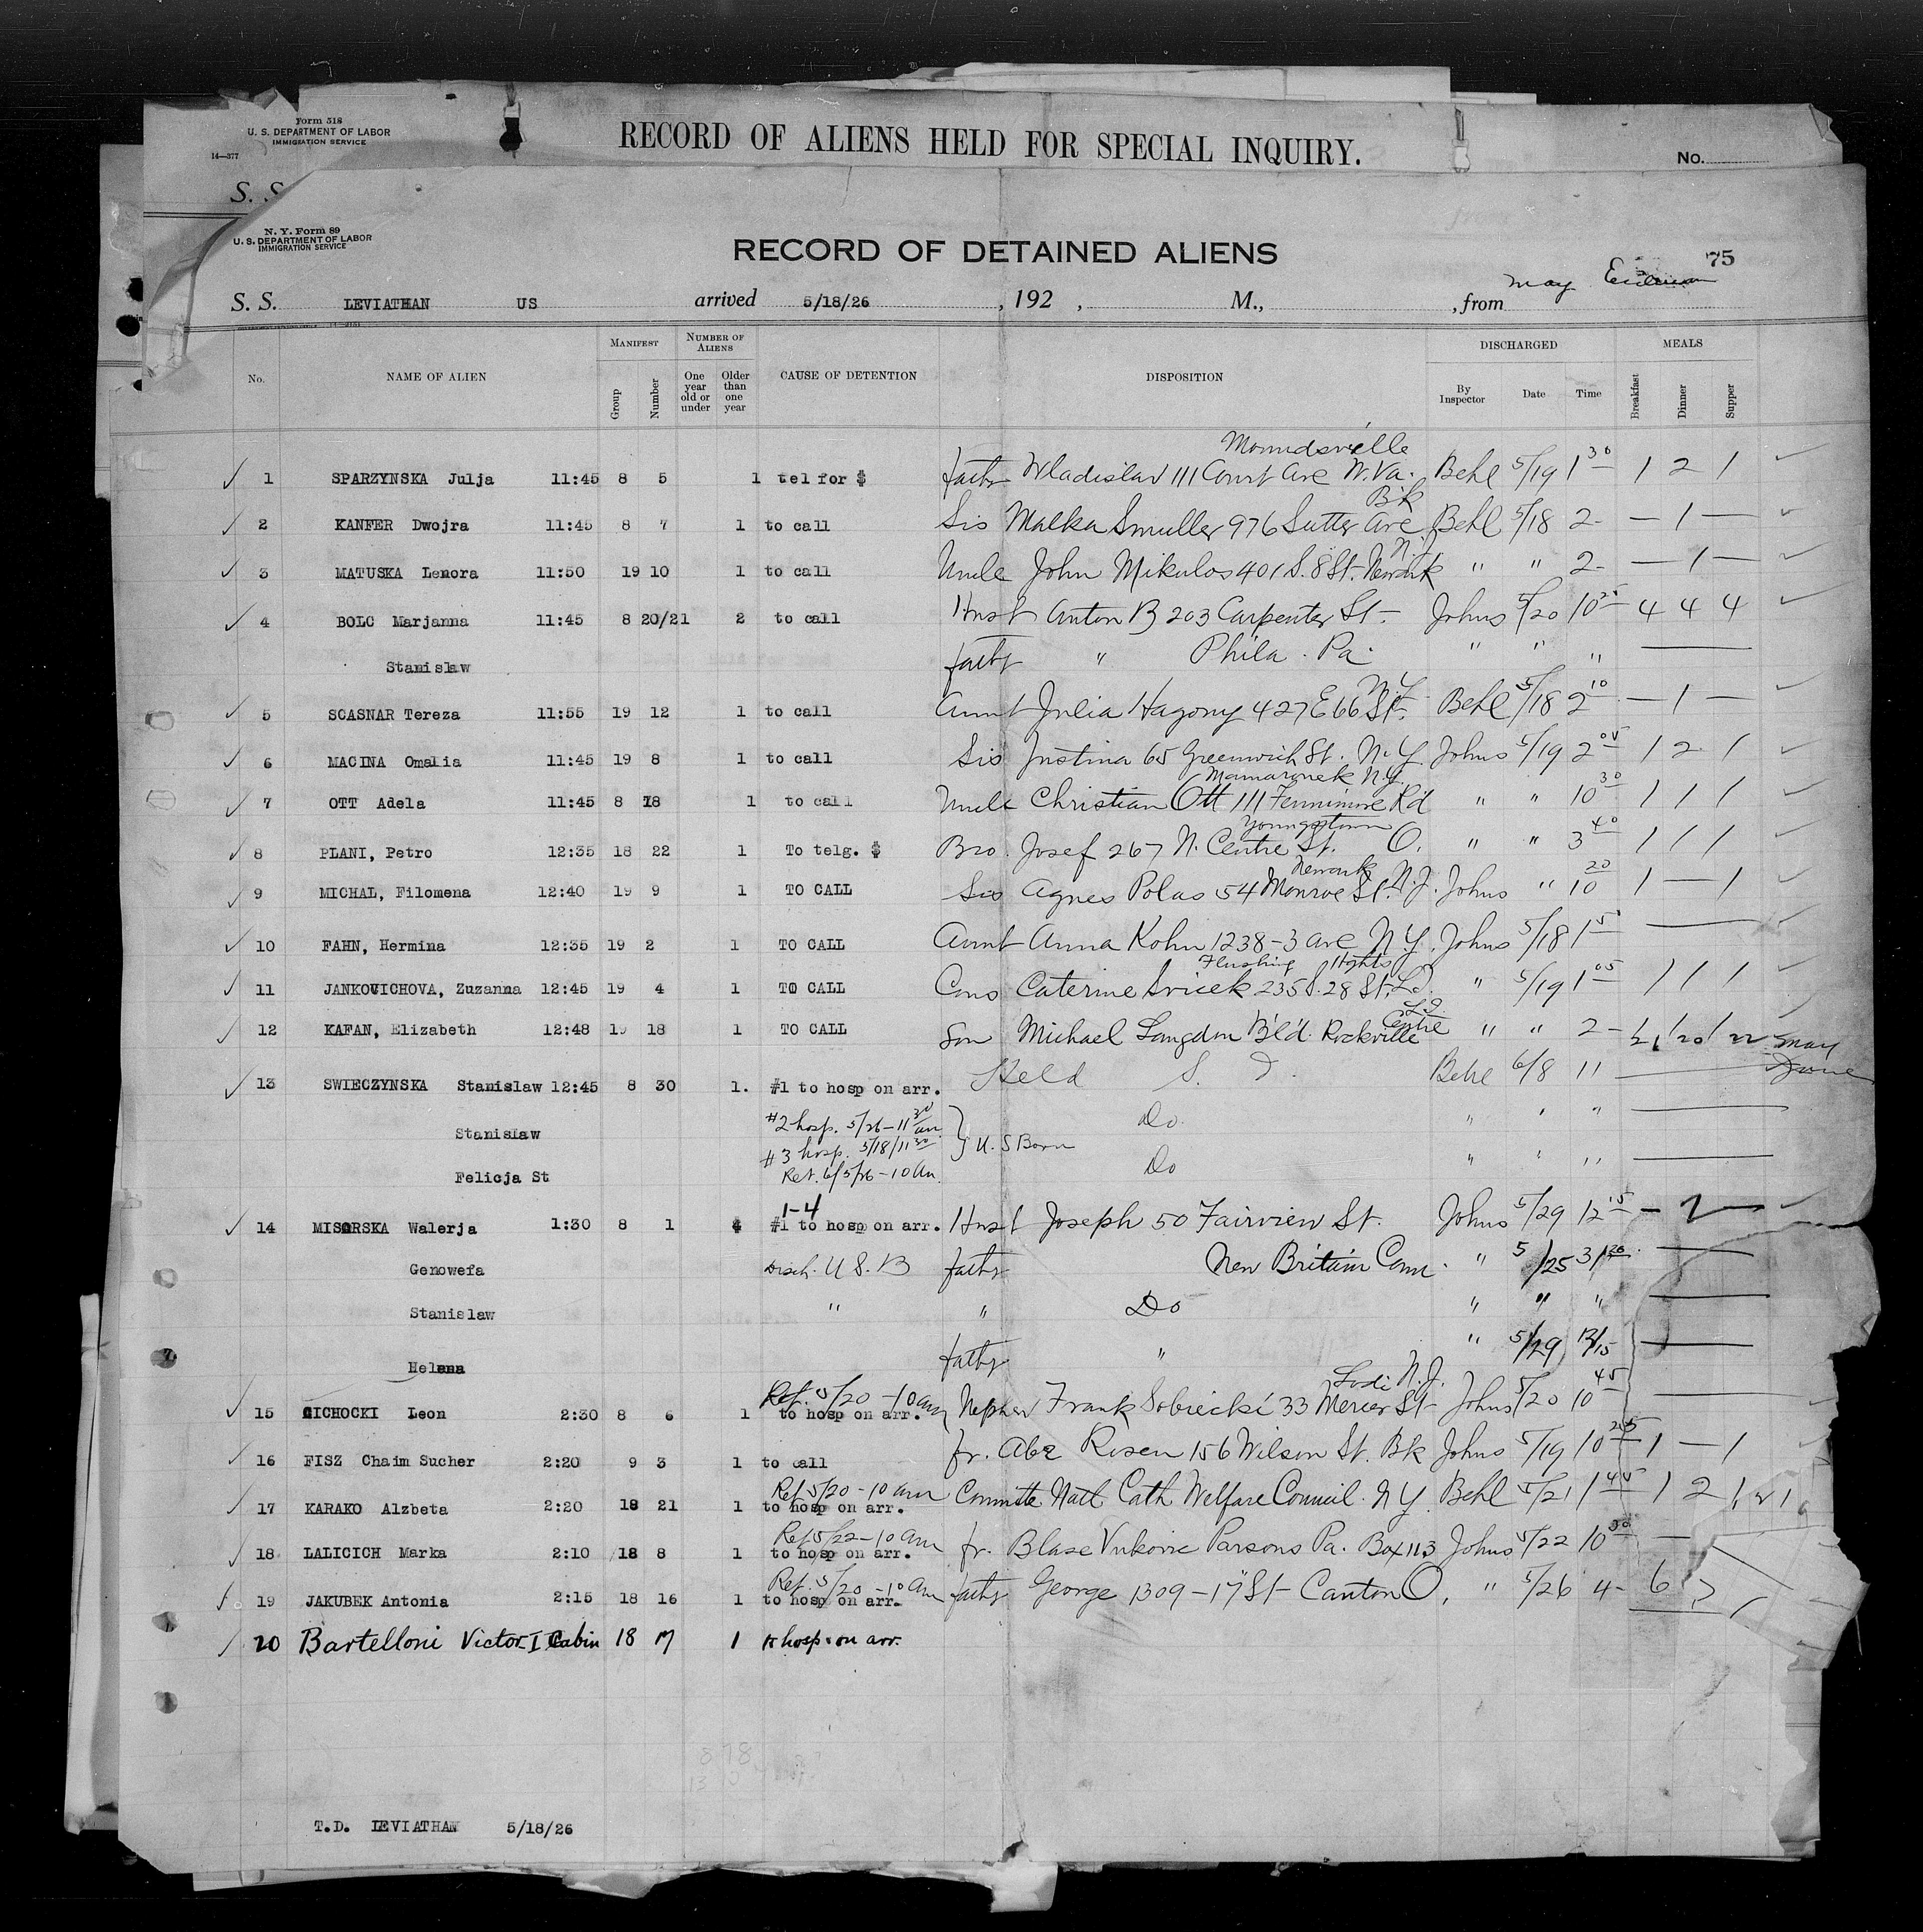 Form 518
U. S. DEPARTMENT OF LABOR
IMMIGRATION SERVICE
14—377
RECORD OF ALIENS HELD FOR SPECIAL INQUIRY.
No.
S. S.
N. Y. Form 89
U. S. DEPARTMENT OF LABOR
IMMIGRATION SERVICE
RECORD OF DETAINED ALIENS
75
S. S. LEVIATHAN US arrived 5/18/26, 192 , M., , from May
No. NAME OF ALIEN MANIFEST Group Number NUMBER OF ALIENS One year old or under Older than one year CAUSE OF DETENTION DISPOSITION DISCHARGED By Inspector Date Time MEALS Breakfast Dinner Supper
Moundsville
1 SPARZYNSKA Julja 11:45 8 5 1 tel for $ fathr Wladislav 111 Court Ave W. Va. Behl 5/19 1 30 1 2 1
Bk
2 KANFER Dwojra 11:45 8 7 1 to call Sis Malka Smuller 976 Sutter Ave Behl 5/18 2- — 1 —
N.J.
3 MATUSKA Lenora 11:50 19 10 1 to call Uncle John Mikulos 401 S. 8 St. Newark " " 2- — 1 —
4 BOLC Marjanna 11:45 8 20/21 2 to call Husb Anton B 203 Carpenter St- Johns 5/20 10 25 4 4 4
Stanislaw fathr " Phila. Pa. " " "
N.Y.
5 SCASNAR Tereza 11:55 19 12 1 to call Aunt Julia Hagony 427 E 66 St. Behl 5/18 2 10 — 1 —
6 MACINA Omalia 11:45 19 8 1 to call Sis Justina 65 Greenwich St. N.Y. Johns 5/19 2 05 1 2 1
Mamaronek N.Y.
7 OTT Adela 11:45 8 18 1 to call Uncle Christian Ott 111 Fennimore Rd " " 10 30 1 1 1
Youngstown
8 PLANI, Petro 12:35 18 22 1 To telg. $ Bro. Josef 267 N. Centre St. O. " " 3 40 1 1 1
Newark
9 MICHAL, Filomena 12:40 19 9 1 TO CALL Sis Agnes Polas 54 Monroe St. N.J. Johns " 10 20 1 — 1
10 FAHN, Hermina 12:35 19 2 1 TO CALL Aunt Anna Kohn 1238-3 Ave N.Y. Johns 5/18 1 50
Flushing Hghts
11 JANKOVICHOVA, Zuzanna 12:45 19 4 1 TO CALL Cous Caterine Svicek 235 S. 28 St. L.I. " 5/19 1 05 1 1 1
L.I.
12 KAFAN, Elizabeth 12:48 19 18 1 TO CALL Son Michael Langdon Bld. Rockville Centre " " 2- 21 20 22 May
13 SWIECZYNSKA Stanislaw 12:45 8 30 1. #1 to hosp on arr. Held S. I. Behl 6/8 11 June
Stanislaw #2 hosp. 5/26-11 30 am. Do. " " "
#3 hosp. 5/18/11 30 U. S Born
Felicja St Ret. 6/5/26-10 Am. Do " " "
1-4
14 MISORSKA Walerja 1:30 8 1 4 #1 to hosp on arr. Husb Joseph 50 Fairview St. Johns 5/29 12 15 — 2 —
Genowefa Disch. U S. B fathr New Britain Conn. " 5/25 3/20
Stanislaw " " Do " " "
Helena fathr " " 5/29 12/15
Lodi N.J.
Ret. 5/20 -10 am
15 CICHOCKI Leon 2:30 8 6 1 to hosp on arr. Nephew Frank Sobiecki 33 Mercer St Johns 5/20 10 45
16 FISZ Chaim Sucher 2:20 9 3 1 to call fr. Abe Rosen 156 Wilson St. Bk Johns 5/19 10 25 1 — 1
Ret 5/20-10 am
17 KARAKO Alzbeta 2:20 18 21 1 to hosp on arr. Committe Natl Cath Welfare Council. N Y. Behl 5/21 1 45 1 2 1
Ret 5/22-10 am
18 LALICICH Marka 2:10 18 8 1 to hosp on arr. fr. Blase Vukovic Parsons Pa. Box 113 Johns 5/22 10 30 —
Ret. 5/20 -10 Am
19 JAKUBEK Antonia 2:15 18 16 1 to hosp on arr. fathr George 1309-17 St- Canton O. " 5/26 4- 6
20 Bartelloni Victor I Cabin 18 17 1 to hosp on arr.
T.D. LEVIATHAN 5/18/26